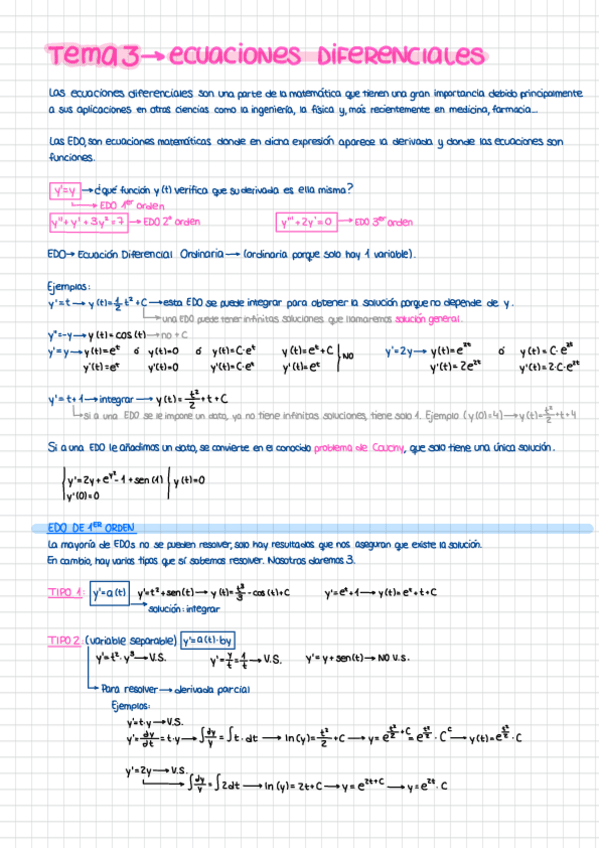 Tema 3 → ECUACIONES DIFERENCIALES
Las ecuaciones diferenciales son una parte de la matemática que tienen una gran importancia debido principalmente
a sus aplicaciones en otras ciencias como la ingeniería, la física y, más recientemente en medicina, farmacia...
Las EDO, son ecuaciones matemáticas donde en dicha expresión aparece la derivada y donde las ecuaciones son
funciones.
y'=y → ¿qué función y(t) verifica que su derivada es ella misma?
→ EDO 1er orden
y''+y'+3y²=7 → EDO 2º orden y'''+2y'=0 → EDO 3er orden
EDO → Ecuación Diferencial Ordinaria → (ordinaria porque solo hay 1 variable).
Ejemplos:
y'=t → y(t)=1/2 t²+C → esta EDO se puede integrar para obtener la solución porque no depende de y.
→ una EDO puede tener infinitas soluciones que llamaremos solución general.
y''=-y → y(t)=cos(t) → no +C
y'=y → y(t)=e^t ó y(t)=0 ó y(t)=C·e^t y(t)=e^t+C y'=2y → y(t)=e^2t ó y(t)=C·e^2t
y'(t)=e^t y'(t)=0 y'(t)=C·e^t y'(t)=e^t NO y'(t)=2e^2t y'(t)=2·C·e^2t
y'=t+1 → integrar → y(t)=t²/2+t+C
→ si a una EDO se le impone un dato, ya no tiene infinitas soluciones, tiene solo 1. Ejemplo (y(0)=4) → y(t)=t²/2+t+4
Si a una EDO le añadimos un dato, se convierte en el conocido problema de Cauchy, que solo tiene una única solución.
y'=2y+e^y²-1+sen(1) y(t)=0
y'(0)=0
EDO DE 1ER ORDEN
La mayoría de EDOs no se pueden resolver, solo hay resultados que nos aseguran que existe la solución.
En cambio, hay varios tipos que sí sabemos resolver. Nosotros daremos 3.
TIPO 1: y'=a(t) y'=t²+sen(t) → y(t)=t³/3-cos(t)+C y'=e^t+1 → y(t)=e^t+t+C
→ solución: integrar
TIPO 2: (variable separable) y'=a(t)·by
y'=t²·y³ → V.S. y'=y/t=1/t → V.S. y'=y+sen(t) → NO V.S.
→ Para resolver → derivada parcial
Ejemplos:
y'=t·y → V.S.
y'=dy/dt=t·y → ∫dy/y=∫t·dt → ln(y)=t²/2+C → y=e^(t²/2+C)=e^(t²/2)·C^C → y(t)=e^(t²/2)·C
y'=2y → V.S.
→ ∫dy/y=∫2dt → ln(y)=2t+C → y=e^(2t+C) → y=e^2t·C